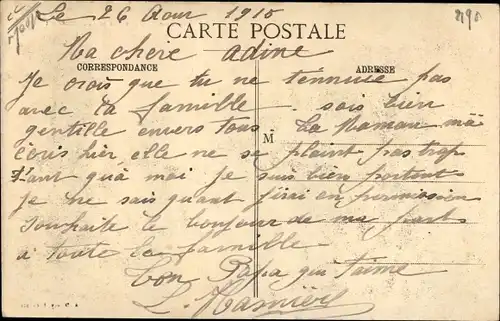 Le 26 Aout 1915
CARTE POSTALE
Ma chere adine
CORRESPONDANCE
ADRESSE
Je crois que tu ne t'ennuie pas
avec ta famille. sois bien
gentille envers tous La Maman m'a
écris hier, elle ne se plaint pas trop
M
tant quà moi je suis bien portant
je ne sais quant j'irai en permission
souhaite le bonjour de ma part
a toute la famille
ton Papa qui t'aime
L.